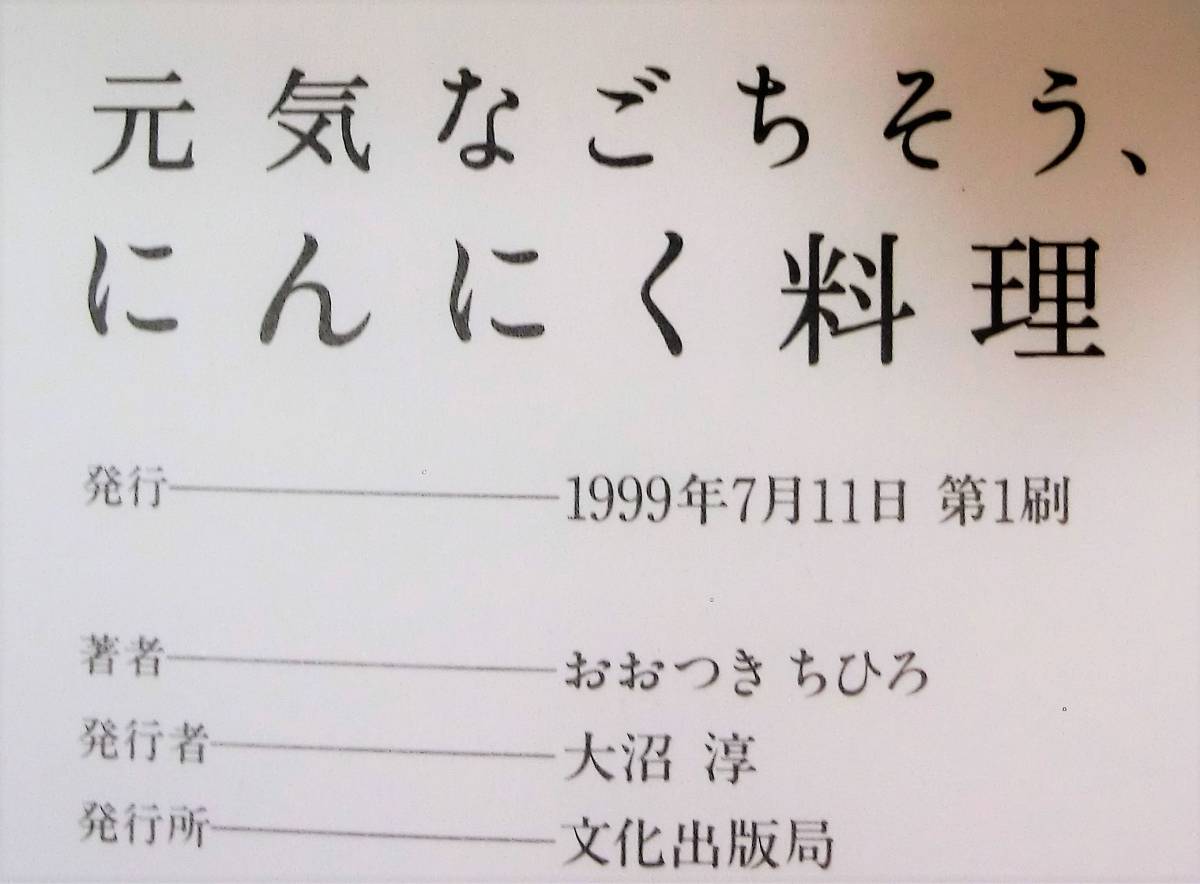 元気なごちそう、
にんにく料理
発行 1999年7月11日 第1刷
著者 おおつき ちひろ
発行者 大沼 淳
発行所 文化出版局